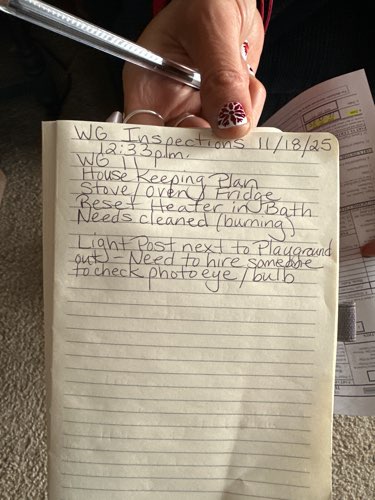 WG Inspections 11/18/25
12:33p.m.
WG 11
House Keeping Plan
Stove/Oven/Fridge
Reset Heater in Bath
Needs cleaned (burning)
Light Post next to Playground
out - Need to hire someone
to check photo eye/bulb